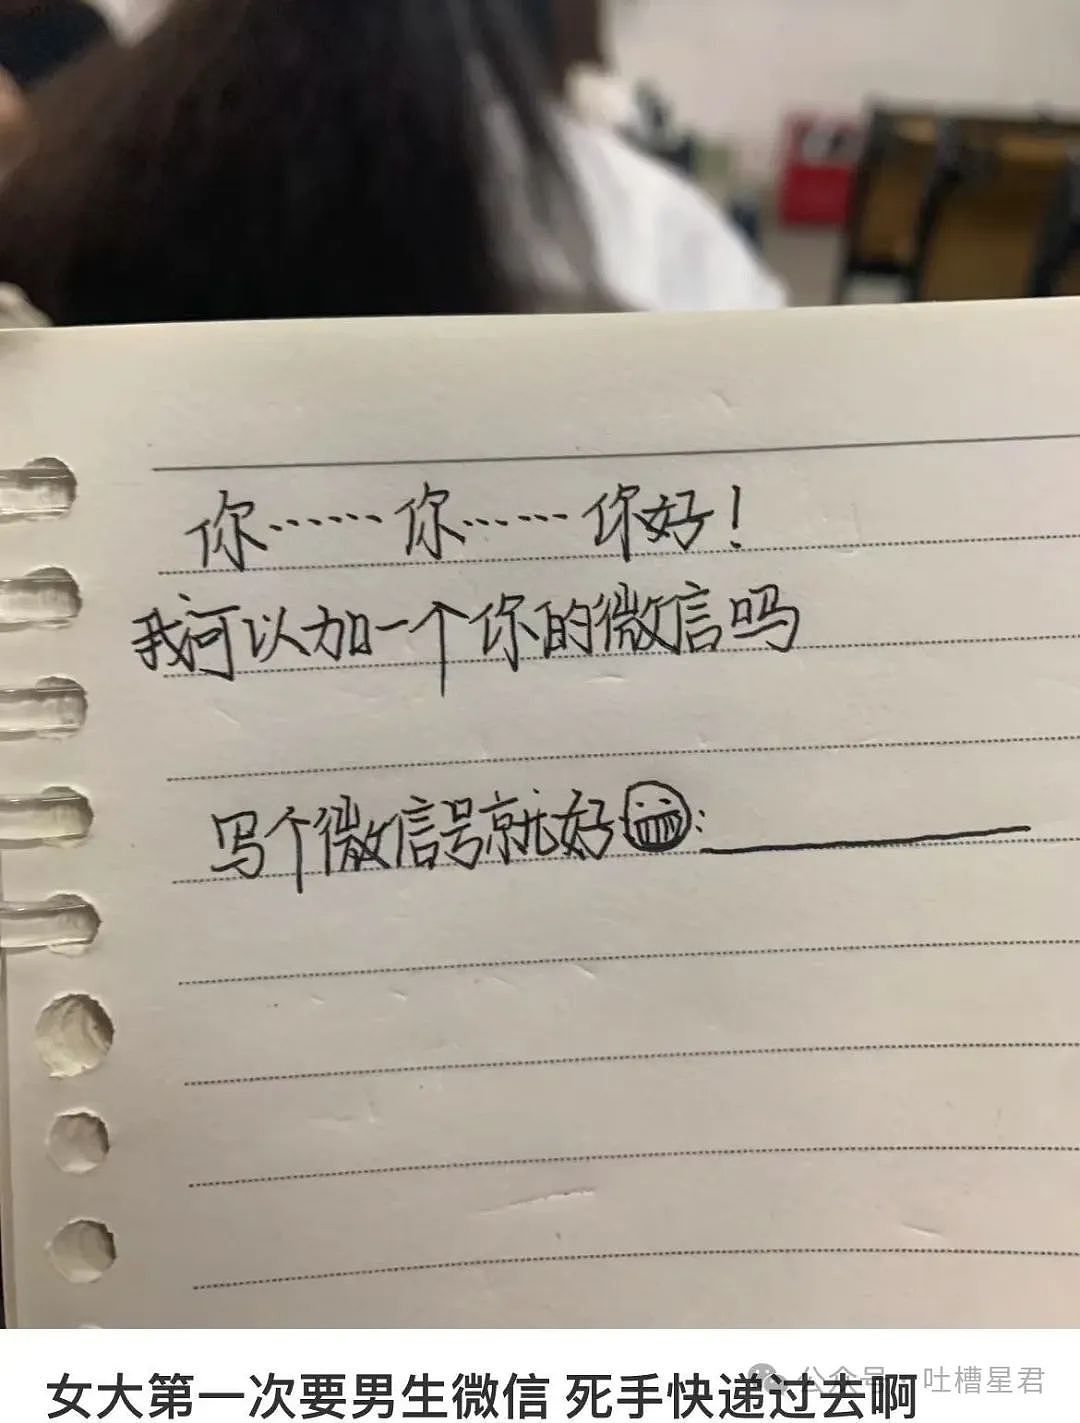 你……你……你好！
我可以加一个你的微信吗
写个微信号就好：
女大第一次要男生微信 死手快递过去啊
公众号·吐槽星君